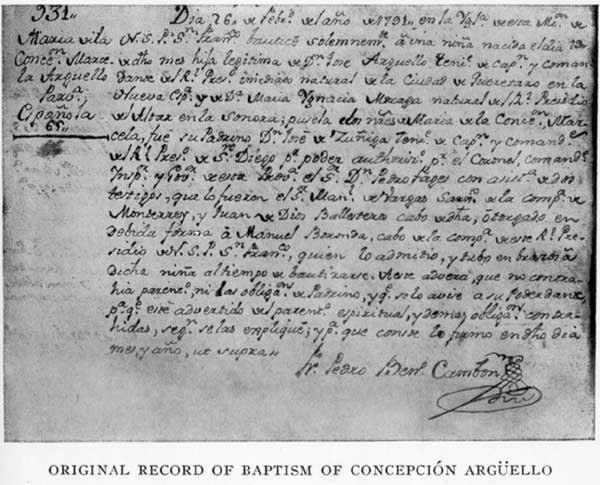 931,,
Maria de la
Concepn. Marce-
la Arguello
Parva.
Española
65,,
Dia 26,, de Febro. del año de 1791,, en la Yga. de esta Mn. de
N. S. P. Sn. Franco. bauticé solemnemte. á una niña nacida el dia 19
de dho mes hija legitima de Dn. Jose Arguello Tente. de Capn. y Coman-
dante del Rl. Preso. imediato natural de la Ciudad de Queretaro en la
Nueva Espa. y de Da. Maria Ygnacia Moraga natural del Rl. Presidio
de Altar en la Sonora; pusela los nres. de Maria de la Concepn. Mar-
cela, fué su Padrino Dn. José de Zuñiga Tente. de Capn. y Comandte.
del Rl. Preso. de Sn. Diego pr. poder pr. el Coronel, comandte.
Inspr. y Govr. de esta Prova. el Sr. Dn. Pedro Fages con asista. de dos
testigos, que lo fueron el Sr. Manl. de Vargas Sargto. de la compa. de
Monterrey, y Juan de Dios Ballesteros cabo de dha, otorgado en
debida forma á Manuel Boronda, cabo de la compa. de este Rl. Pre-
sidio de N. S. P. Sn. Franco., quien lo admitio, y tubo en brazos á
dicha niña al tiempo de bautizarse. A este adverti, que no contra-
hia parento. ni las obligs. de Padrino, y qe. solo avise a su Poderdante,
pa. qe. esté advertido del parento. espiritual, y demas obligs. contra-
hidas, segn. se las expliqué; y pa. que conste lo firmo en dho dia
mes, y año, ut supra,,
Fr. Pedro Benito Cambon
ORIGINAL RECORD OF BAPTISM OF CONCEPCIÓN ARGÜELLO